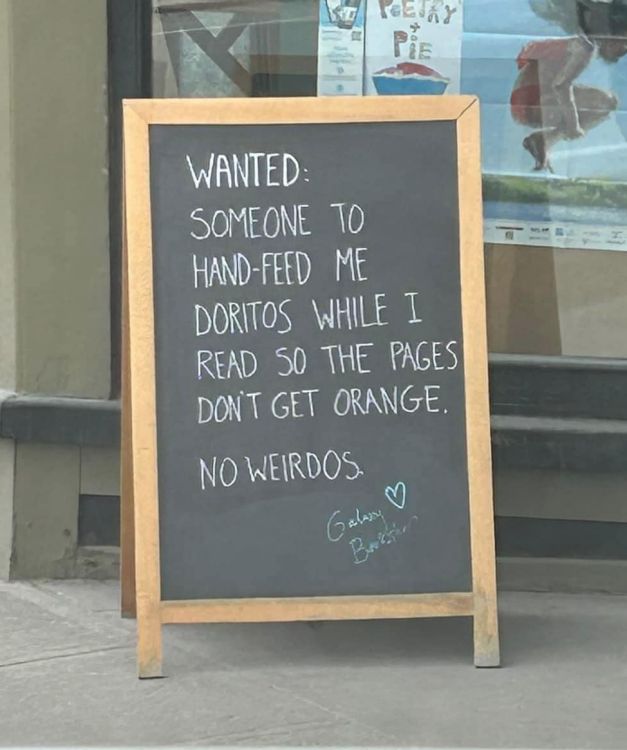 POETRY
+
PIE
WANTED:
SOMEONE TO
HAND-FEED ME
DORITOS WHILE I
READ SO THE PAGES
DON'T GET ORANGE.
NO WEIRDOS.
Galaxy